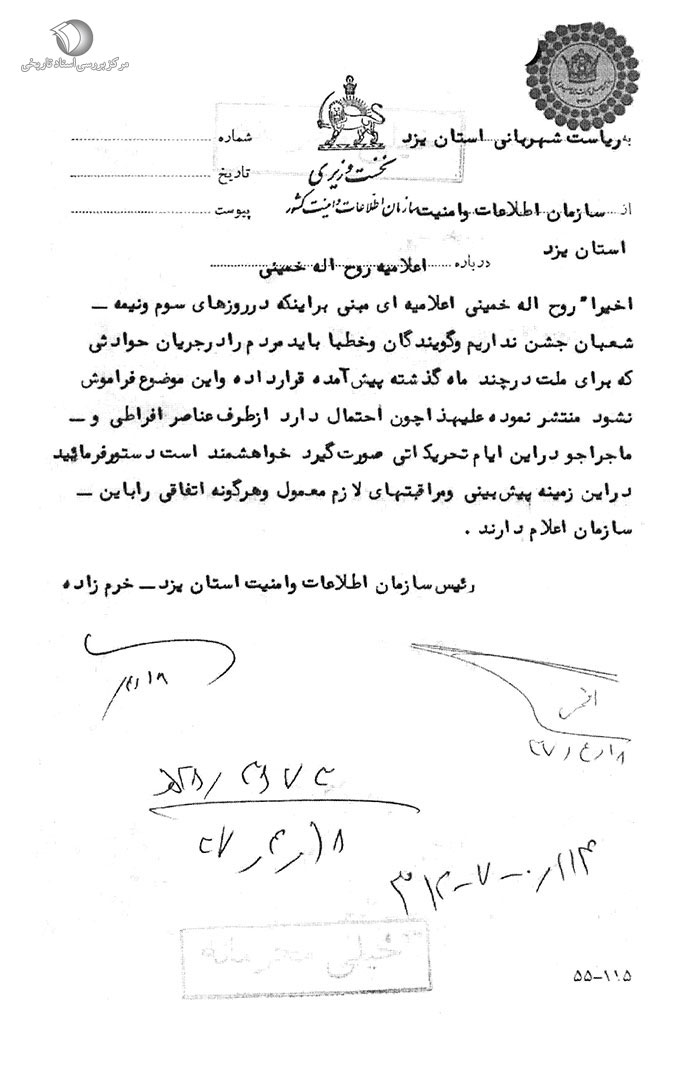 مرکز بررسی اسناد تاریخی
به ریاست شهربانی استان یزد
شماره
نخست وزیری
تاریخ
سازمان اطلاعات و امنیت کشور
پیوست
از سازمان اطلاعات وامنیت
استان یزد
درباره اعلامیه روح اله خمینی
اخیرا" روح اله خمینی اعلامیه ای مبنی براینکه درروزهای سوم ونیمه –
شعبان جشن نداریم وگویندگان وخطبا باید مردم رادرجریان حوادثی
که برای ملت درچند ماه گذشته پیش آمده قرارداده واین موضوع فراموش
نشود منتشر نموده علیهذا چون احتمال دارد ازطرف عناصر افراطی و –
ماجراجو دراین ایام تحریکاتی صورت گیرد خواهشمند است دستورفرمائید
دراین زمینه پیش بینی ومراقبتهای لازم معمول وهرگونه اتفاقی راباین –
سازمان اعلام دارند .
رئیس سازمان اطلاعات وامنیت استان یزد – خرم زاده
خیلی
۵۵-۱۱۵